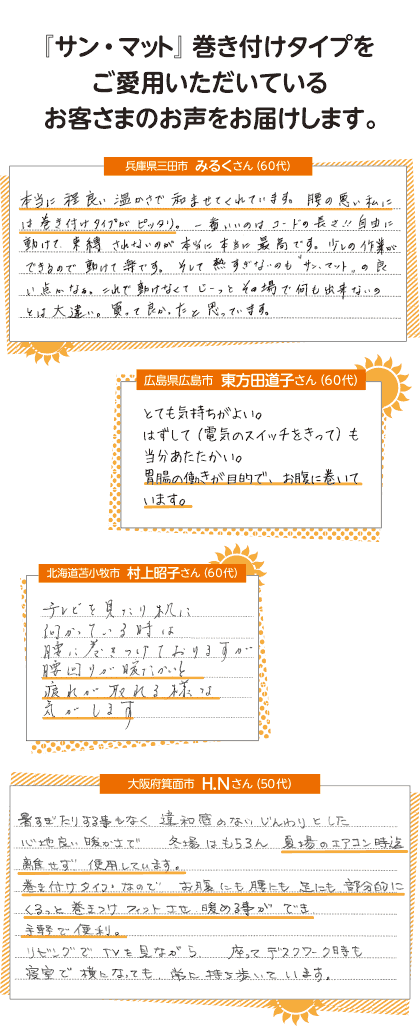 『サン・マット』巻き付けタイプを
ご愛用いただいている
お客さまのお声をお届けします。
兵庫県三田市 みるくさん（60代）
本当に程良い温かさで和ませてくれています。腰の悪い私に
は巻き付けタイプがピッタリ。一番いいのはコードの長さ!!自由に
動けて束縛されないのが本当に本当に最高です。少しの作業が
できるので動けて楽です。そして熱すぎないのも"サン・マット"の良
い点かなぁ。これで動けなくてじーっとその場で何も出来ないの
とは大違い。買って良かったと思っています。
広島県広島市 東方田道子さん（60代）
とても気持ちがよい。
はずして（電気のスイッチをきって）も
当分あたたかい。
胃腸の働きが目的で、お腹に巻いて
います。
北海道苫小牧市 村上昭子さん（60代）
テレビを見たり机に
向かっている時は
腰に巻きつけておりますが
腰回りが暖かいと
疲れが取れる様な
気がします
大阪府箕面市 H.Nさん（50代）
暑すぎたりする事もなく違和感のないじんわりとした
心地良い暖かさで 冬場はもちろん 夏場のエアコン時迄
離せず使用しています。
巻き付けタイプなので お腹にも腰にも足にも部分的に
くるっと巻きつけフィットさせ 暖める事ができ
手軽で便利。
リビングでTVを見ながら、座ってデスクワーク時も
寝室で横になっても、常に持ち歩いています。